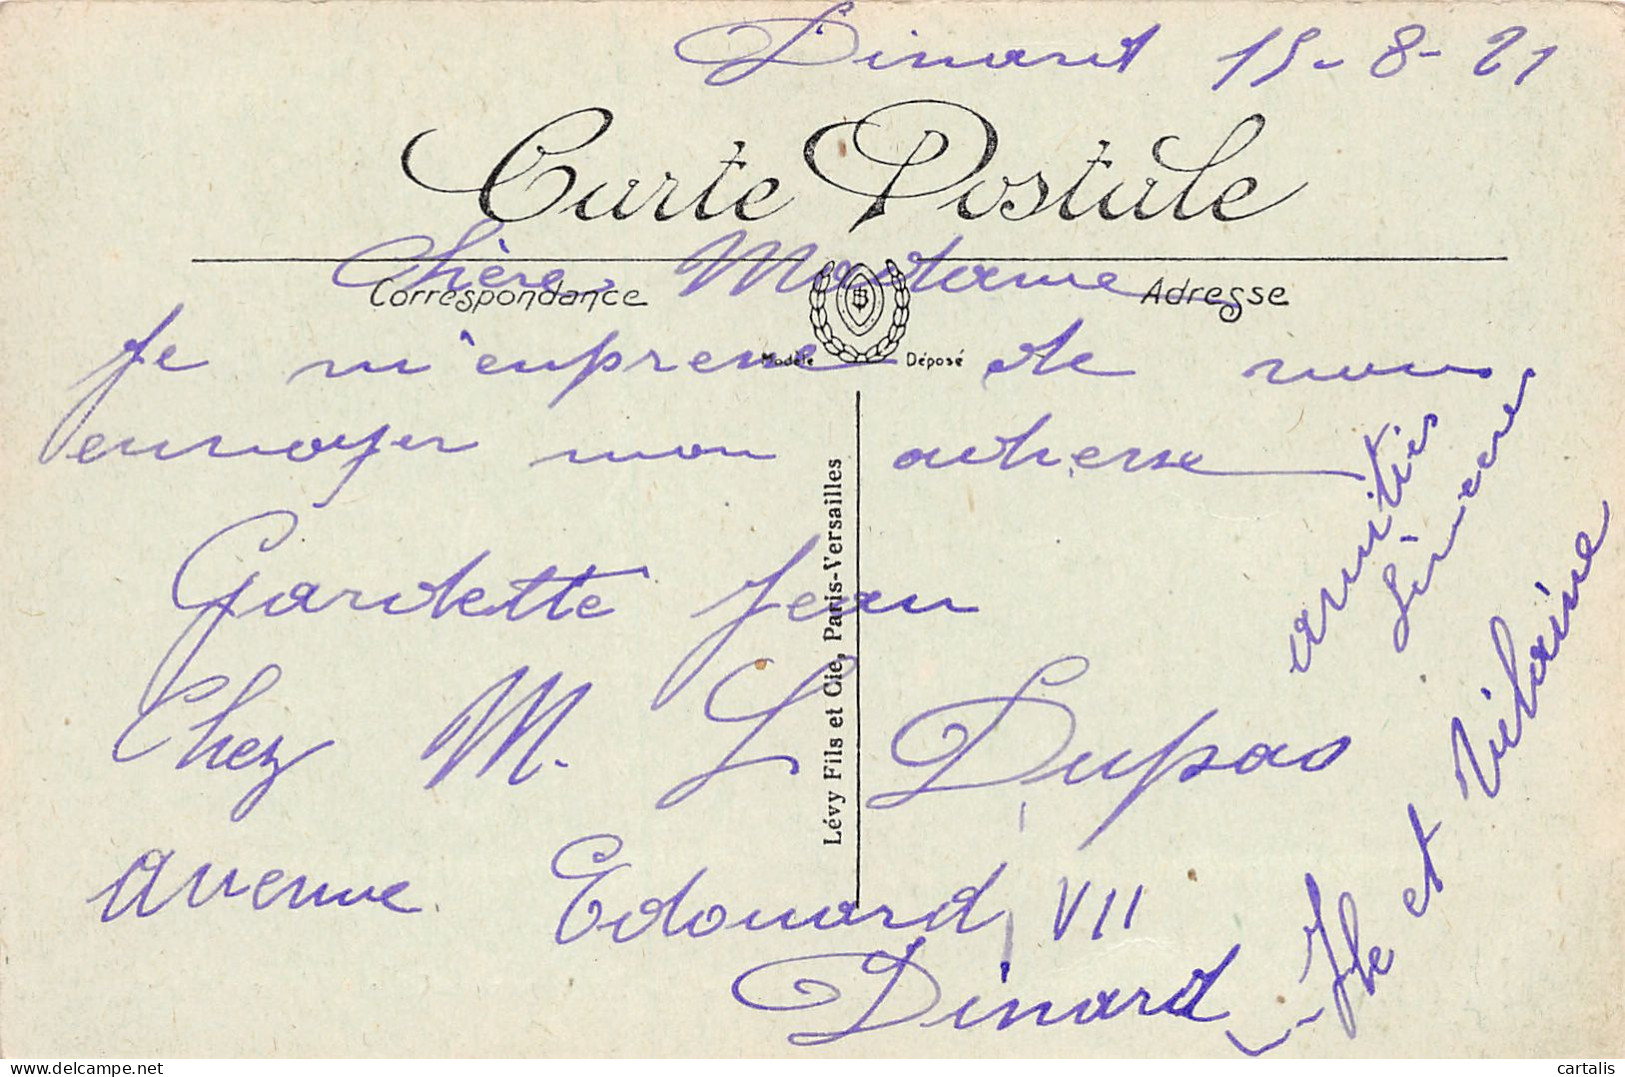 Dinard 15-8-21
Carte Postale
Chère Madame
Correspondance
Adresse
Modèle Déposé
Je m'empresse de vous
envoyer mon adresse
Gardette Jean
Chez M. L Dupas
avenue Edouard VII
Dinard
Ille et Vilaine
amitiés
sincères
Lévy Fils et Cie, Paris-Versailles
cartalis